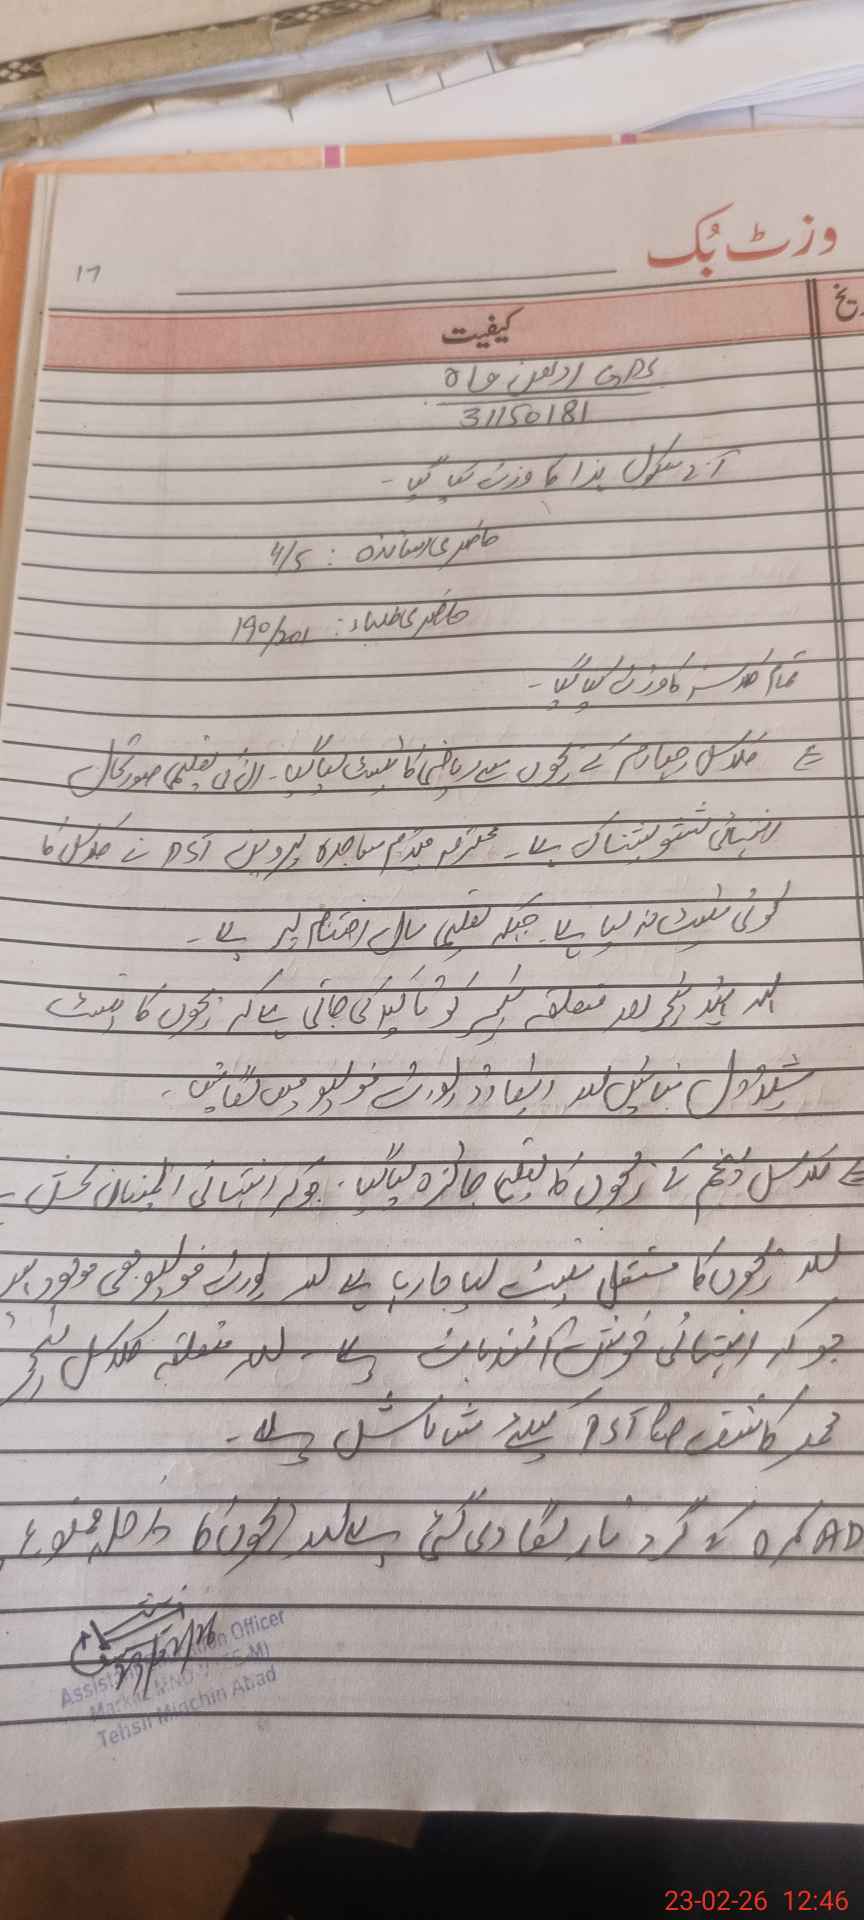 وزٹ بُک
۱۶
ریخ
کیفیت
GPS چاہ
31150181
آج سکول ہذا کا وزٹ کیا گیا۔
حاضری اساتذہ : 4/5
حاضری طلباء : 190/201
تمام کلاسز کا وزٹ کیا گیا۔
کلاس چہارم کے بچوں سے ریاضی کا ٹیسٹ لیا گیا۔ ان کی تعلیمی صورتحال
انتہائی تشویشناک ہے۔ محترمہ میڈم ساجدہ پروین PST نے کلاس کا
کوئی ٹیسٹ نہ لیا ہے۔ جبکہ تعلیمی سال اختتام پر ہے۔
اور متعلقہ ٹیچر کو تاکید کی جاتی ہے کہ بچوں کا ٹیسٹ
شیڈول بنائیں اور ریکارڈ پورٹ فولیو میں لگائیں۔
کلاس پنجم کے بچوں کا تعلیمی جائزہ لیا گیا۔ جو کہ انتہائی اطمینان بخش
اور بچوں کا مستقل ٹیسٹ لیا جا رہا ہے اور پورٹ فولیو بھی موجود
جو کہ انتہائی خوش آئند بات ہے۔ اور متعلقہ کلاس ٹیچر
محمد کاشف PST کیلئے شاباش ہے۔
کمرہ کے گرد تار لگا دی گئی ہے اور بچوں کا داخلہ ممنوع
23/02/26
Assistant Education Officer
Markaz
Tehsil Minchin Abad
23-02-26 12:46